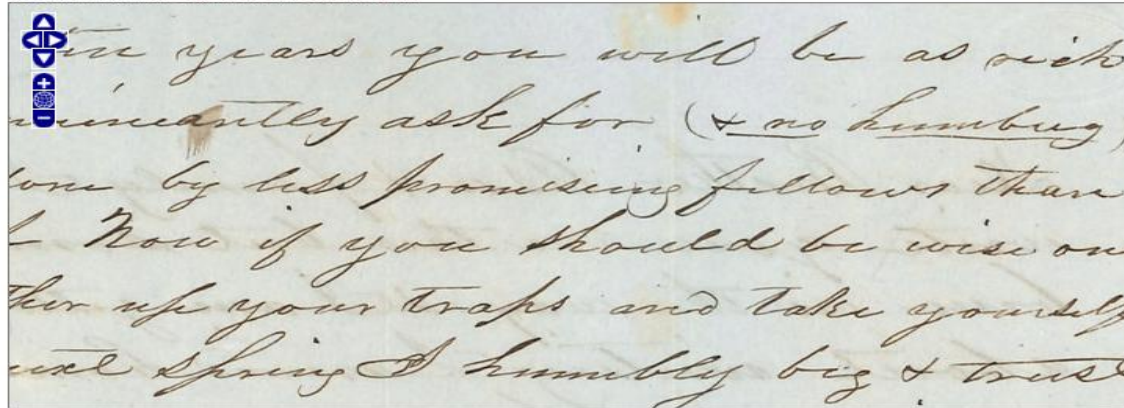 ten years you will be as rich
ask for (& no humbug)
done by less promising fellows than
Now if you should be wise on
ther up your traps and take yourself
next spring I humbly beg & trust